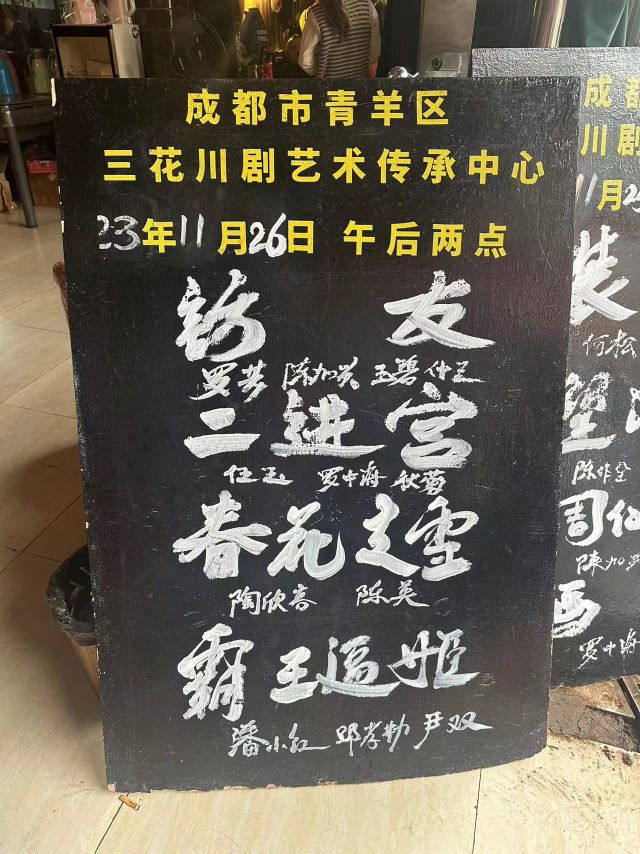 成都市青羊区
三花川剧艺术传承中心
23年11月26日 午后两点
友
陈加兴 王碧 仲三
二进宫
任玉 罗中海 秋蓉
春花走雪
陶欣容 陈英
霸王逼姬
潘小红 邓孝勤 尹双
成都
川剧
11月2
装
何松
望
陈作全
周仁
陈加
罗中海